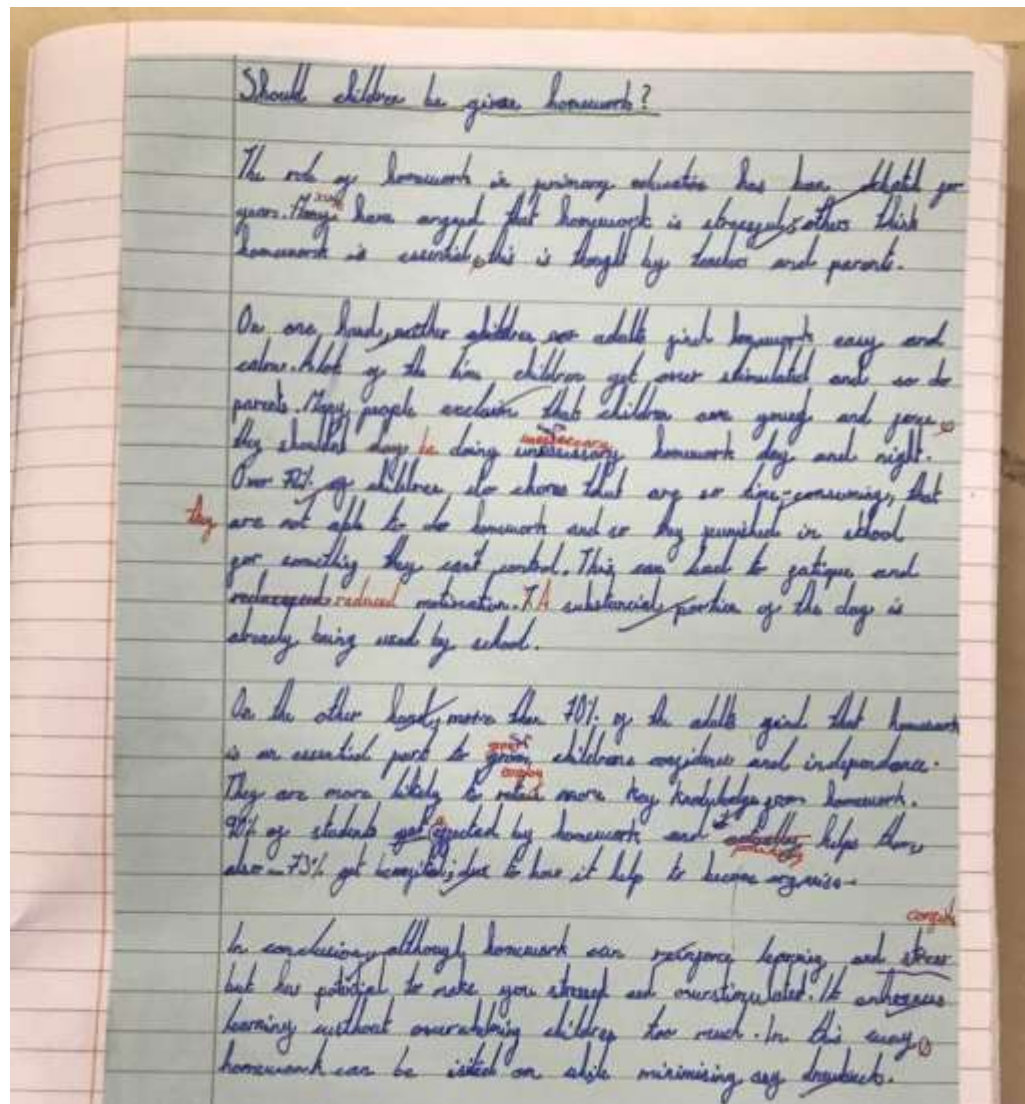 Should children be given homework?
The role of homework in primary education has been debated for
years. Many have argued that homework is stressful, others think
homework is essential, this is thought by teachers and parents.
On one hand, neither children nor adults find homework easy and
calm. A lot of the time children get over stimulated and so do
parents. Many people exclaim that children are young and
they shouldnt be doing unnecessary homework day and night.
Over 72% of children do chores that are so time-consuming, that
they are not able to do homework and so they punished in school
for something they can't control. This can lead to fatigue and
reduced motivation. A substancial portion of the day is
already being used by school.
On the other hand, more than 70% of the adults find that homework
is an essential part to childrens confidence and independance.
They are more likely to retain more key knowledge from homework.
90% of students get affected by homework and it helps them
also 73% get benefited; due to how it help to become organise
In conclusion, although homework can reinforce learning and
but has potential to make you stressed and overstimulated. It
learning without overwhelming children too much. In this way
homework can be on while minimising any drawbacks.